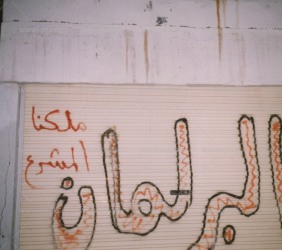 ملكنا
المشرع
البرلمان